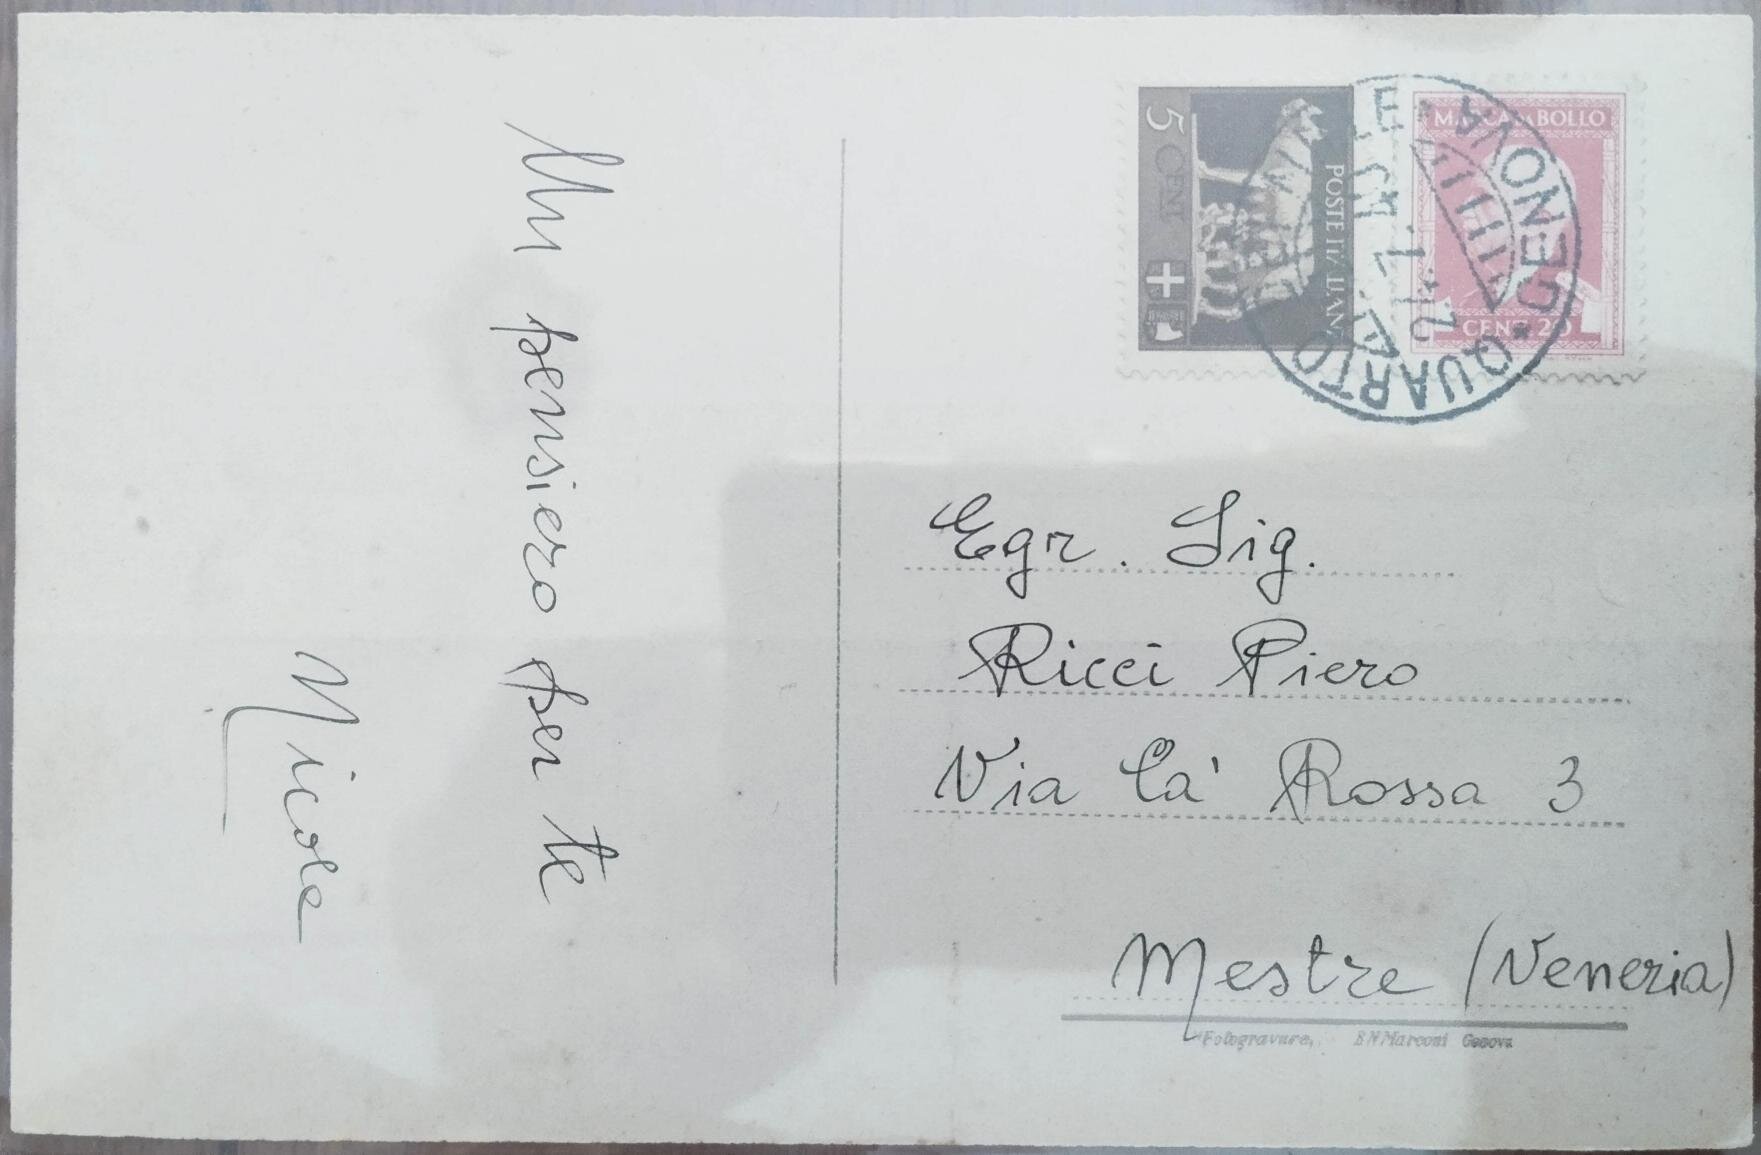 Un pensiero per te
Nicola
5 CENT
POSTE ITALIANE
MARCA DA BOLLO
CENT. 20
QUARTO
GENOVA
Egr. Sig.
Ricci Piero
Via Ca' Rossa 3
Mestre (Venezia)
"Fotogravure, SN Marconi Genova